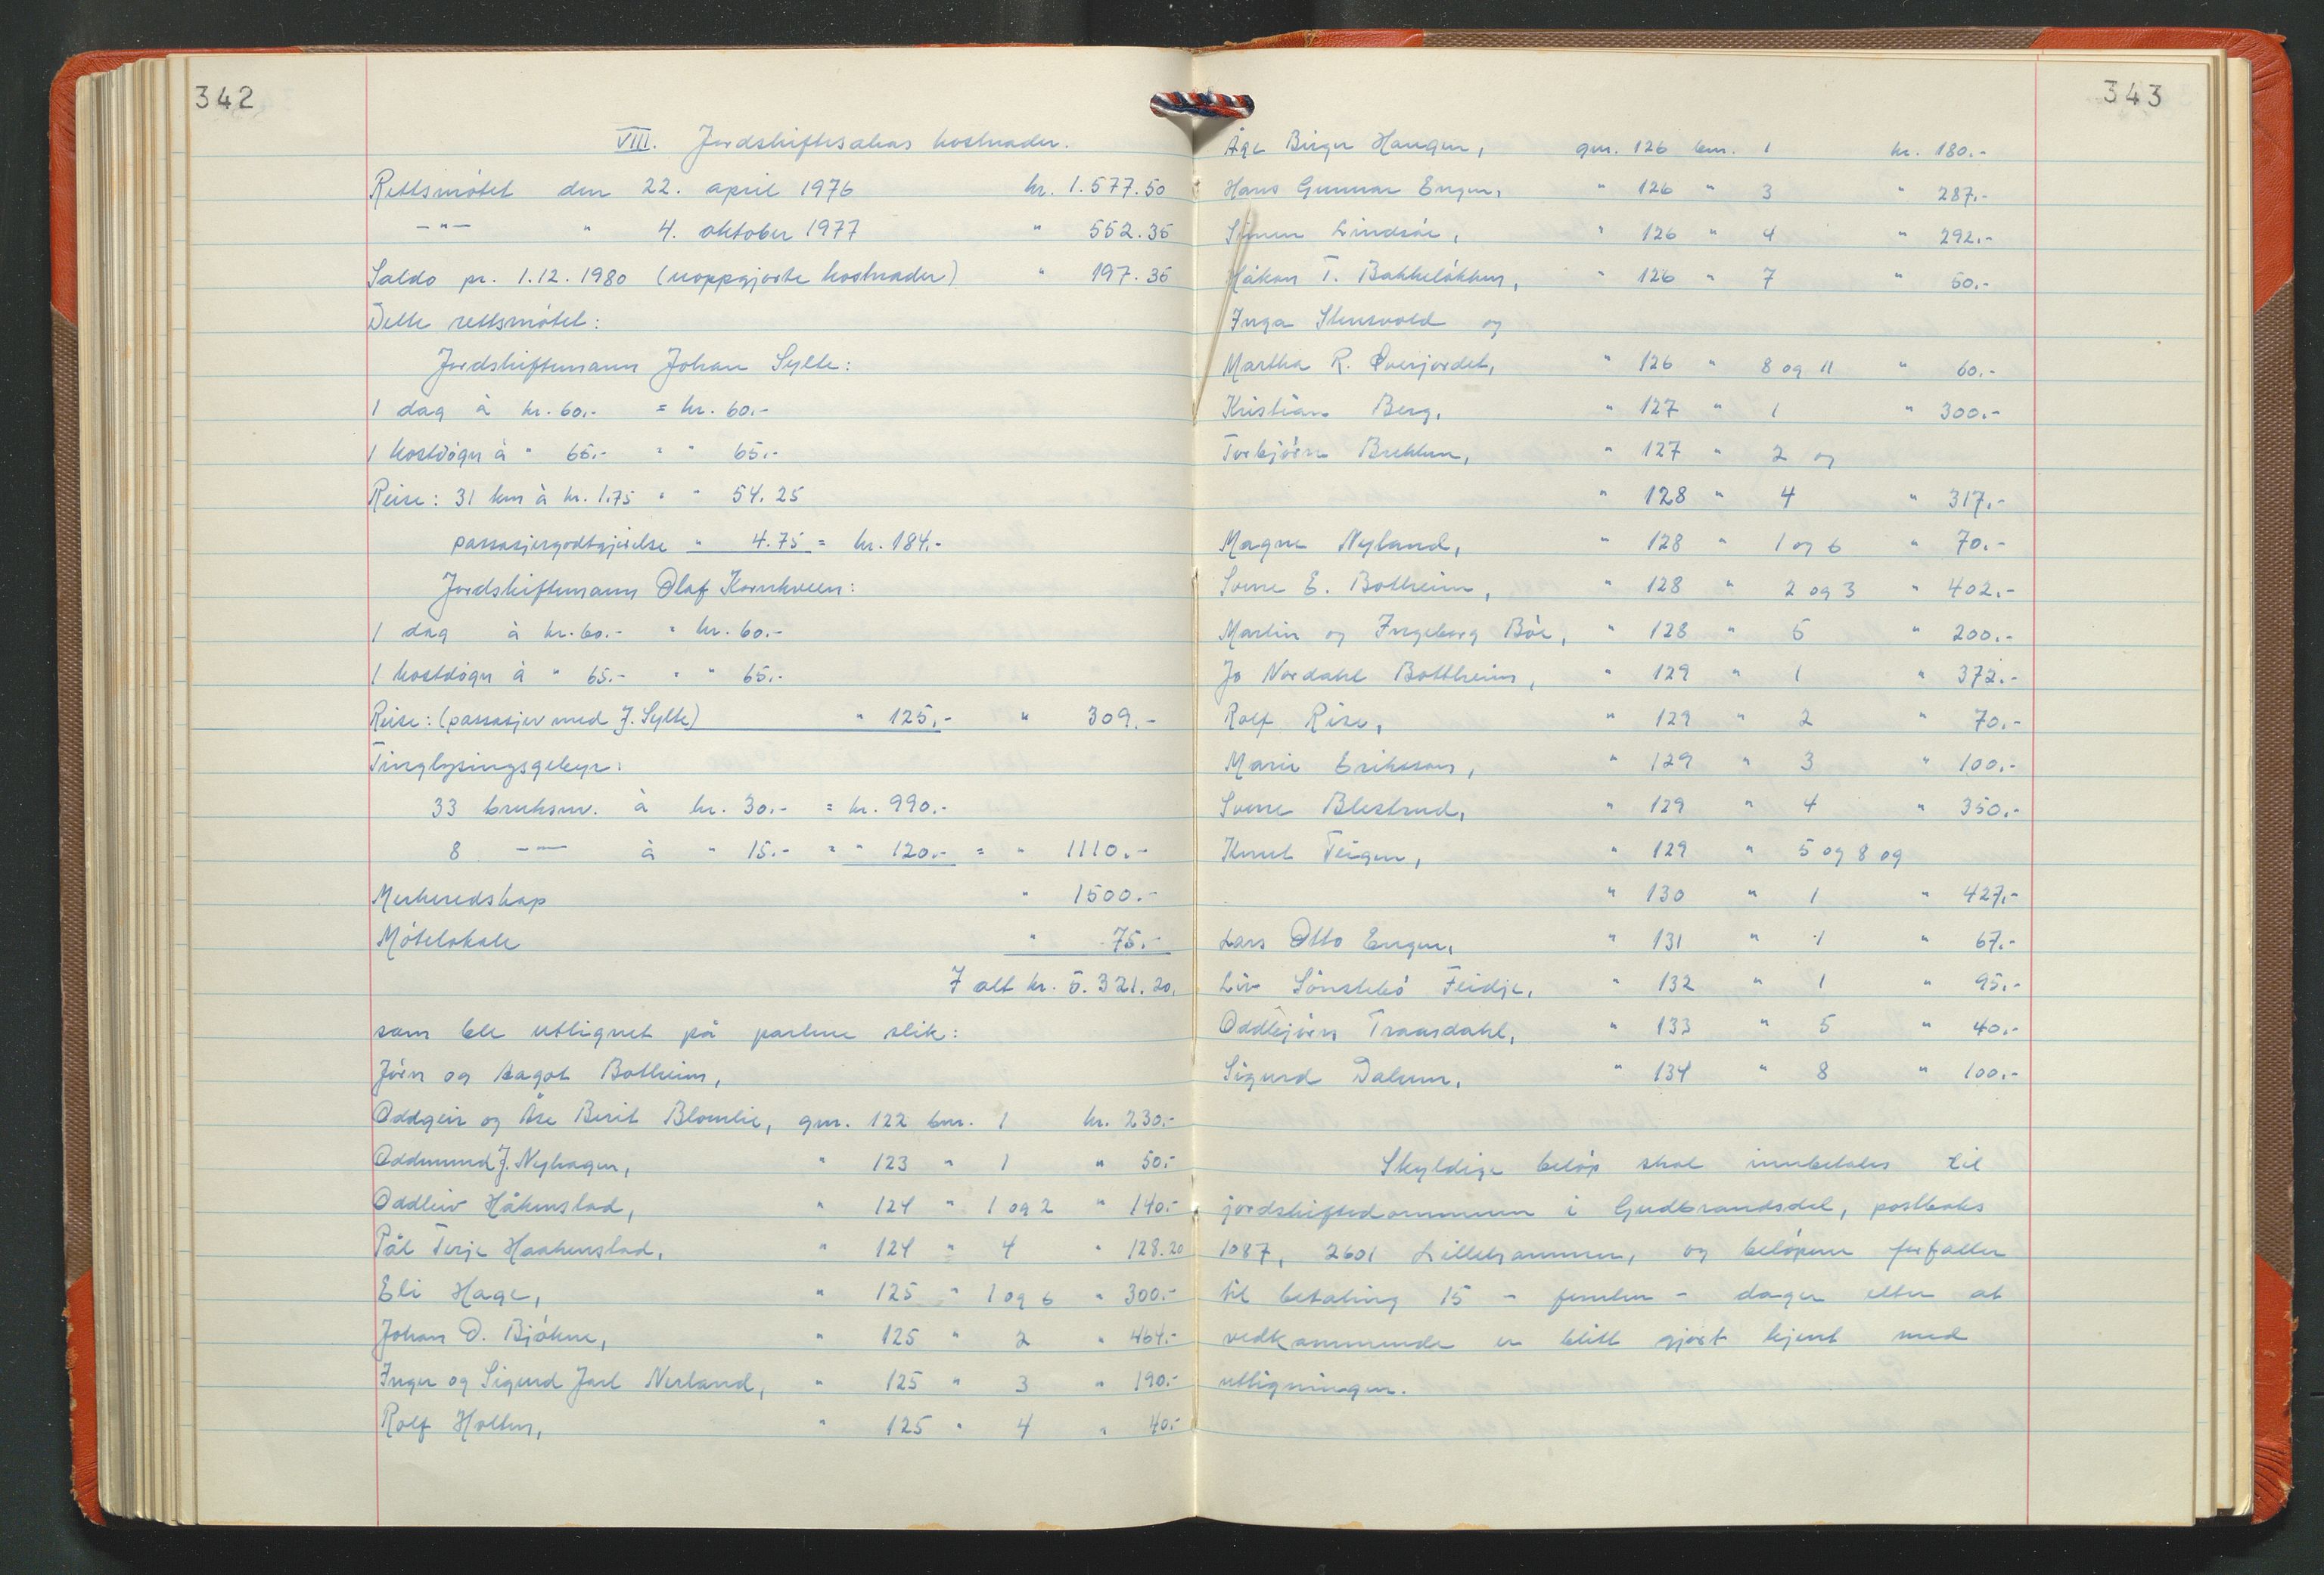 342
VIII. Jordskiftesakas kostnader.
Rettsmøtet den 22. april 1976 kr. 1.577.50
-"- " 4. oktober 1977 " 552.35
Saldo pr. 1.12.1980 (uoppgjorte kostnader) " 197.35
Dette rettsmøtet:
Jordskiftemann Johan Sylte:
1 dag à kr. 60.- = kr. 60.-
1 kostdøgn à " 65.- = " 65.-
Reise: 31 km à kr. 1.75 = " 54.25
passasjergodtgjørelse " 4.75 = kr. 184.-
Jordskiftemann Olaf Kornkveen:
1 dag à kr. 60.- = kr. 60.-
1 kostdøgn à " 65.- = " 65.-
Reise: (passasjer med J. Sylte) " 125.- " 309.-
Tinglysingsgebyr:
33 bruksnr. à kr. 30.- = kr. 990.-
8 -"- à " 15.- = " 120.- = " 1110.-
Merkeredskap " 1500.-
Møtelokale " 75.-
I alt kr. 5.321.20.
som ble utlignet på partene slik:
Jørn og Dagot Botheim,
Oddgeir og Åse Berit Blomlie, gnr. 122 bnr. 1 kr. 230.-
Oddmund J. Nyhagen, " 123 " 1 " 50.-
Oddleiv Håkenstad, " 124 " 1 og 2 " 140.-
Pål Terje Haakenstad, " 124 " 4 " 128.20
Eli Hage, " 125 " 1 og 6 " 300.-
Johan O. Bjøkne, " 125 " 2 " 464.-
Inger og Sigurd Jarl Nerland, " 125 " 3 " 190.-
Rolf Holten, " 125 " 4 " 40.-
343
Åge Birger Haugen, gnr. 126 bnr. 1 kr. 180.-
Hans Gunnar Enger, " 126 " 3 " 287.-
Simen Lindsøe, " 126 " 4 " 292.-
Håkon T. Bakkeløkken, " 126 " 7 " 50.-
Inga Stensvold og
Martha R. Øverjordet, " 126 " 8 og 11 " 60.-
Kristian Berg, " 127 " 1 " 300.-
Torbjørn Brekken, " 127 " 2 og
" 128 " 4 " 317.-
Magne Nyland, " 128 " 1 og 6 " 70.-
Sverre E. Bottheim, " 128 " 2 og 3 " 402.-
Martin og Ingeborg Bøe, " 128 " 5 " 200.-
Jo Nordahl Bottheim, " 129 " 1 " 372.-
Rolf Rise, " 129 " 2 " 70.-
Marie Eriksson, " 129 " 3 " 100.-
Sverre Blestrud, " 129 " 4 " 350.-
Knut Teigen, " 129 " 5 og 8 og
" 130 " 1 " 427.-
Lars Otto Enger, " 131 " 1 " 67.-
Liv Sønstebø Feidje, " 132 " 1 " 95.-
Oddbjørn Traasdahl, " 133 " 5 " 40.-
Sigurd Dalum, " 134 " 8 " 100.-
Skyldige beløp skal innbetales til
jordskiftedommeren i Gudbrandsdal, postboks
1087, 2601 Lillehammer, og beløpene forfaller
til betaling 15 - femten - dager etter at
vedkommende er blitt gjort kjent med
utligningen.